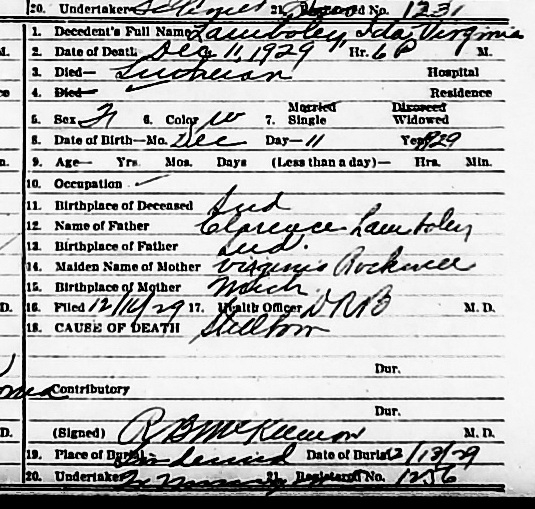 20. Undertaker 21. Registered No. 1231
1. Decedent's Full Name Lamboley, Ida Virginia
M. 2. Date of Death Dec 11, 1929 Hr. 6 P M.
3. Died— Lutheran Hospital
4. Died— Residence
5. Sex F 6. Color W 7. Married Single Divorced Widowed
8. Date of Birth—Mo. Dec Day—11 Year 1929
9. Age— Yrs. Mos. Days (Less than a day)— Hrs. Min.
10. Occupation
11. Birthplace of Deceased Ind
12. Name of Father Clarence Lamboley
13. Birthplace of Father Ind.
14. Maiden Name of Mother Virginia Rockwell
15. Birthplace of Mother Mich
D. 16. Filed 12/16/29 17. Health Officer D R B M. D.
18. CAUSE OF DEATH Stillborn
Dur.
Contributory
Dur.
D. (Signed) M. D.
19. Place of Burial Date of Burial 12/13/29
20. Undertaker 21. Registered No. 1256